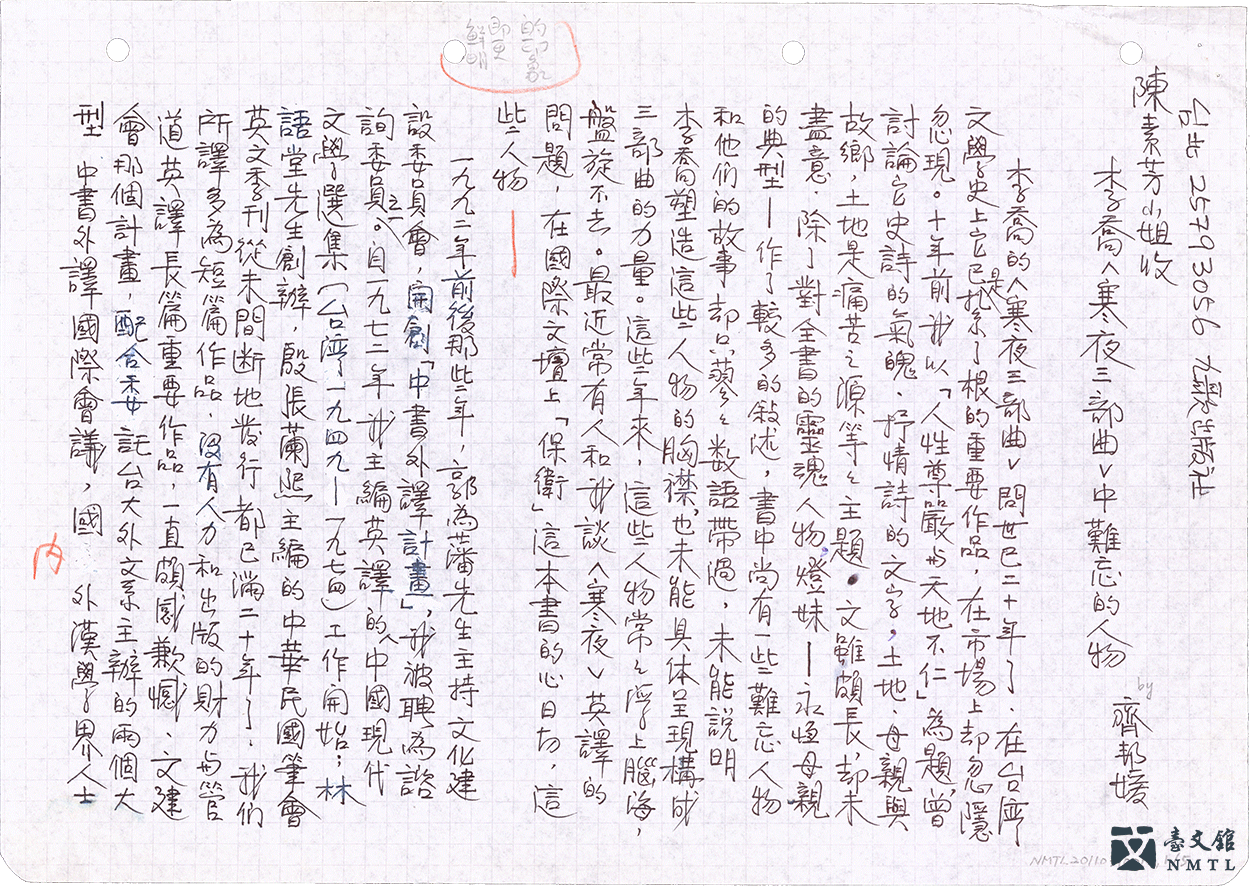 台北 25793056 九歌出版社
陳素芳小姐收
李喬《寒夜三部曲》中難忘的人物
by 齊邦媛
李喬的《寒夜三部曲》問世已二十年了．在台灣
文學史上它已是扎緊了根的重要作品，在市場上卻忽隱
忽現。十年前我以「人性尊嚴與天地不仁」為題，曾
討論它史詩的氣魄、抒情詩的文字，土地、母親與
故鄉，土地是痛苦之源等々主題．文雖頗長，卻未
盡意．除了對全書的靈魂人物，燈妹—永恆母親
的典型—作了較多的敍述，書中尚有一些難忘人物
和他們的故事卻只寥々数語帶過，未能說明
李喬塑造這些人物的胸襟，也未能具体呈現構成
三部曲的力量。這些年來，這些人物常々浮上腦海，
盤旋不去。最近常有人和我談《寒夜》英譯的
問題，在國際文壇上「保衛」這本書的心日切，這
些人物—
的印象
即更
鮮明
一九九二年前後那些年，郭為藩先生主持文化建
設委員會，開創「中書外譯計畫」，我被聘為諮
詢委員之一。自一九七二年我主編英譯的《中國現代
文學選集》（台灣一九四九—一九七四）工作開始；林
語堂先生創辦，殷張蘭熙主編的中華民國筆會
英文季刊從未間断地發行都已滿二十年了．我們
所譯多為短篇作品．沒有人力和出版的財力與管
道英譯長篇重要作品，一直頗感歉憾．文建
會那個計畫，配合委託台大外文系主辦的兩個大
型 中書外譯國際會議，國內外漢學界人士
臺文館
NMTL